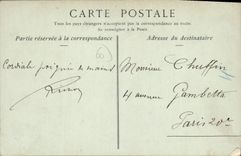 CARTE POSTALE
Tous les pays étrangers n'acceptent pas la correspondance au recto
Se renseigner à la Poste
Partie réservée à la correspondance
Adresse du destinataire
8
Cordiale poignée de mains
Monsieur Cheffin
4 avenue Gambetta
Paris 20e